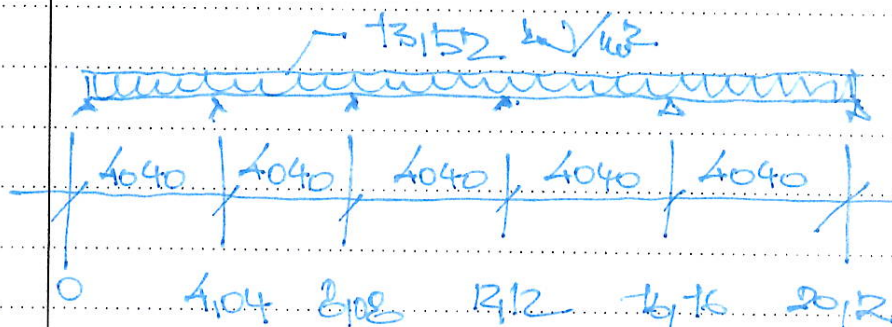 13,152 kN/m²
4040 4040 4040 4040 4040
0 4,04 8,08 12,12 16,16 20,12